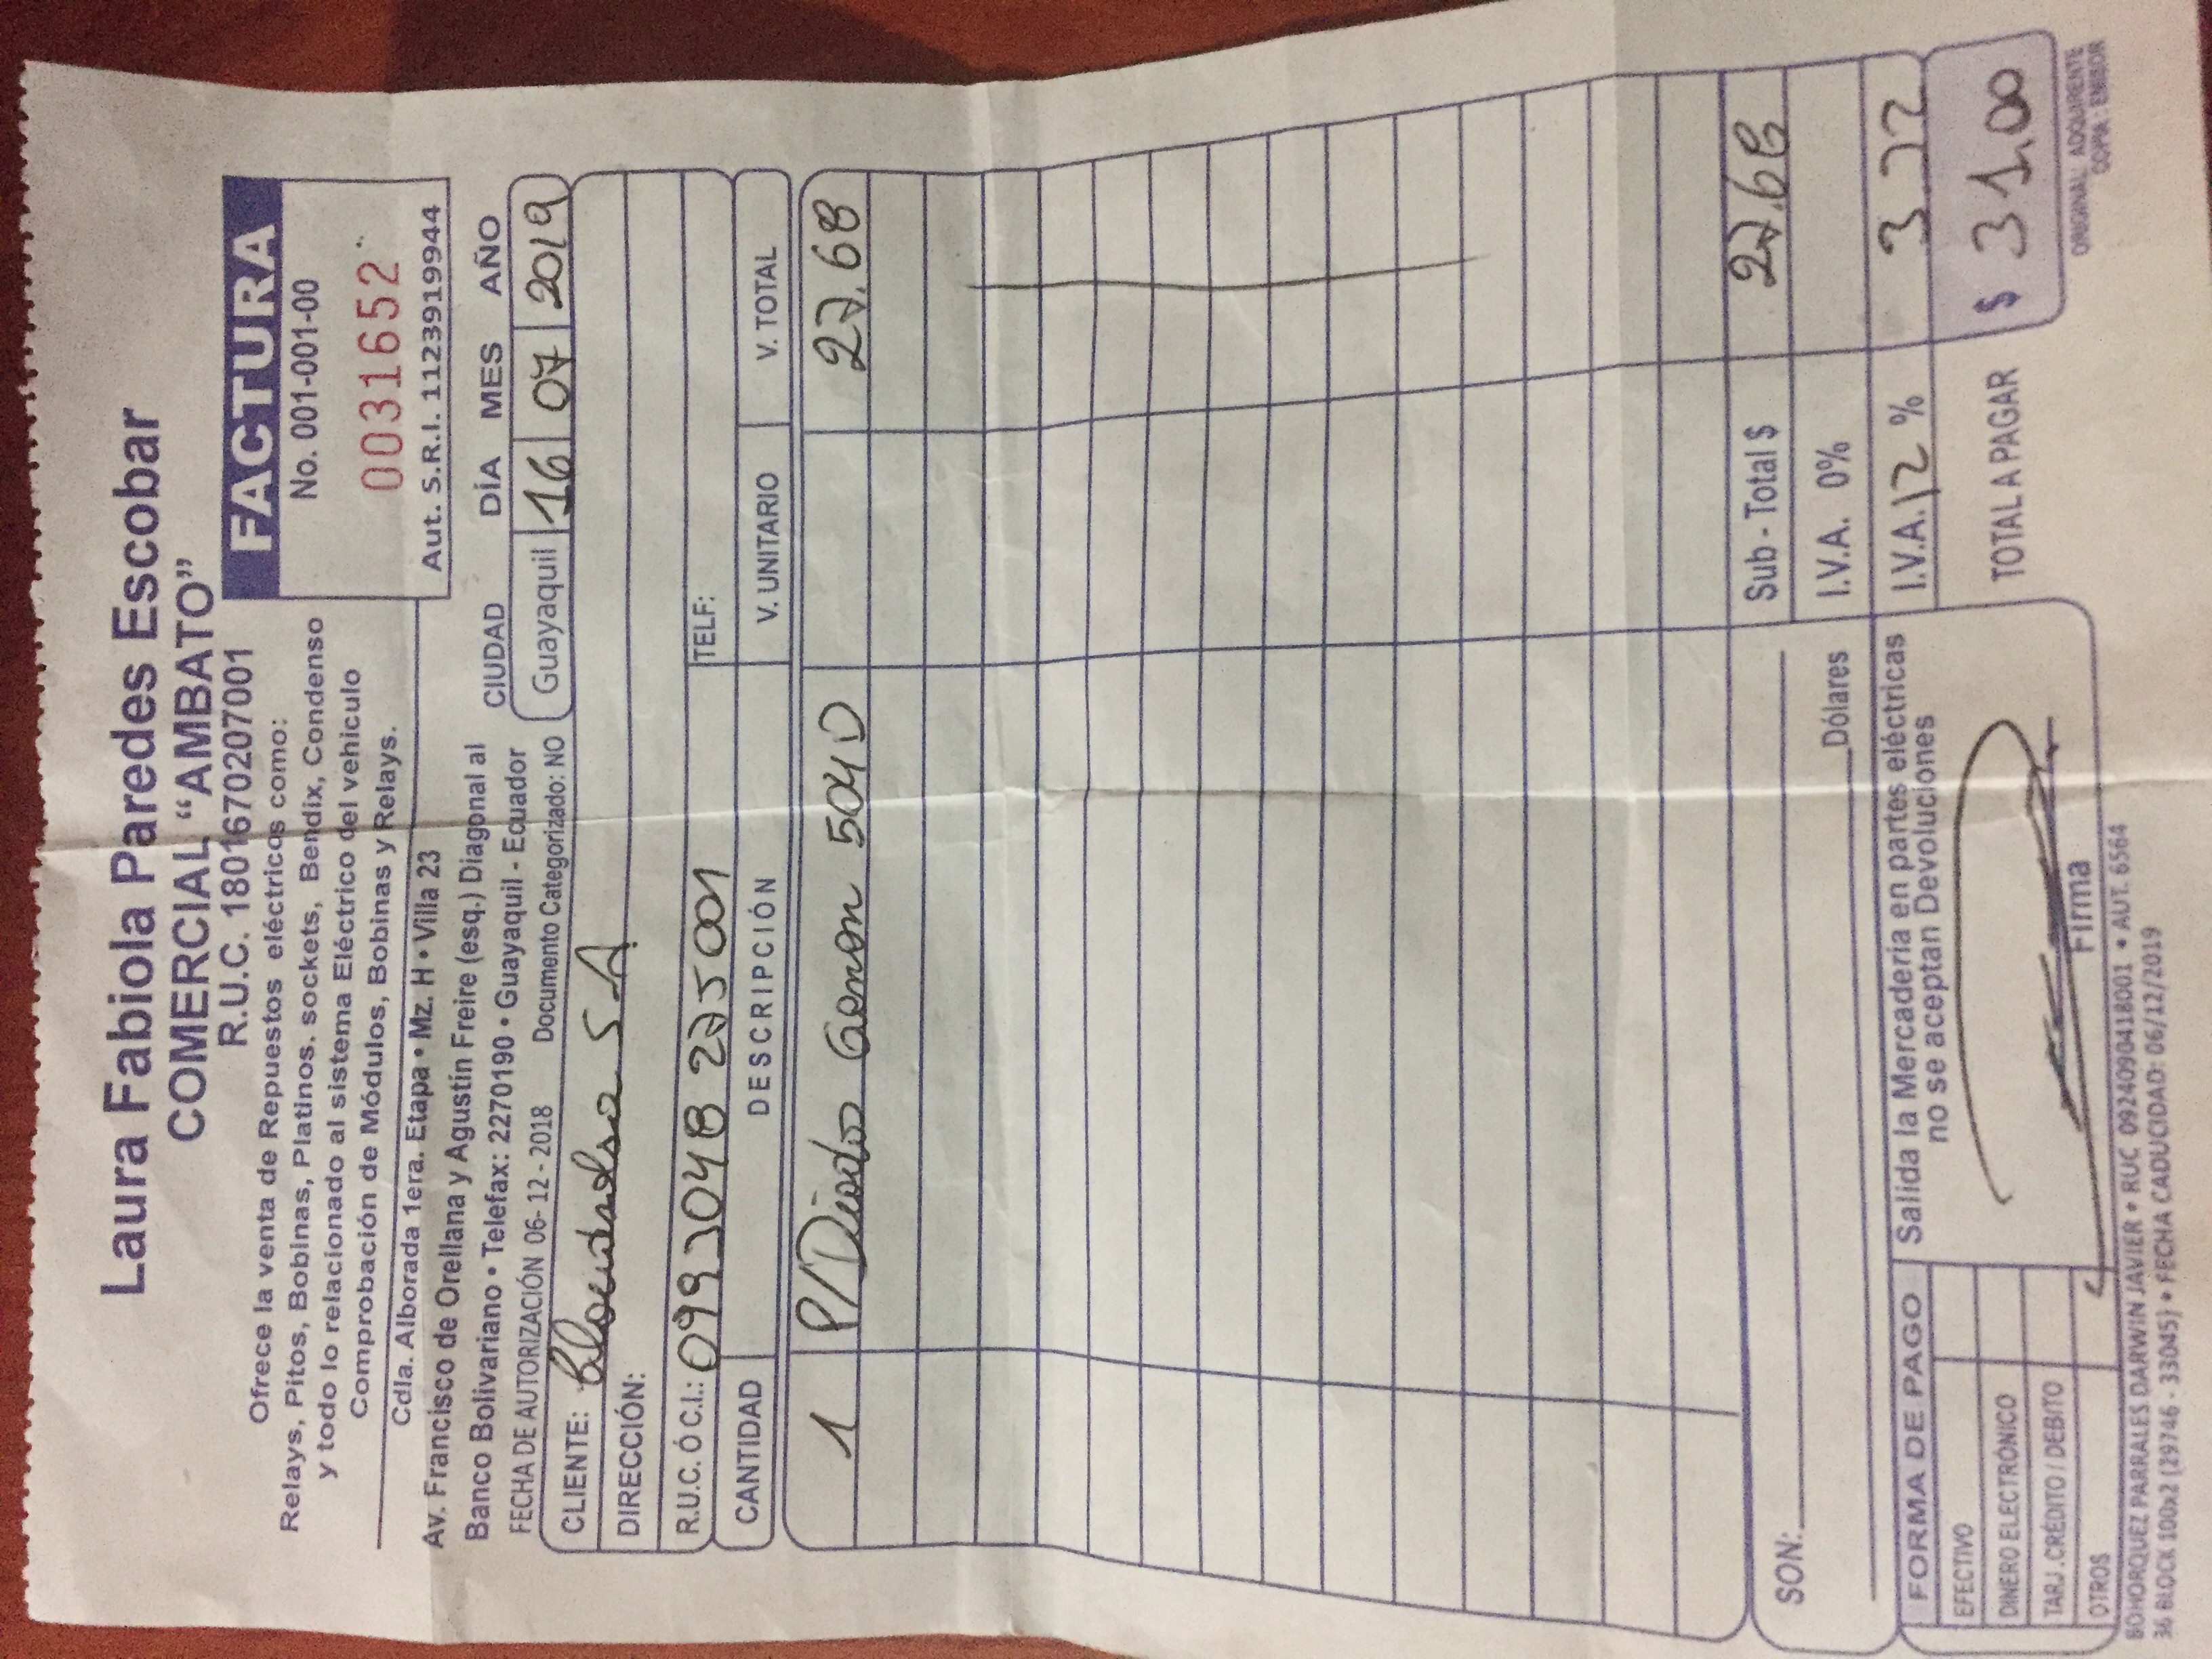 Laura Fabiola Paredes Escobar
COMERCIAL “AMBATO”
R.U.C. 1801670207001
Ofrece la venta de Repuestos eléctricos como:
Relays, Pitos, Bobinas, Platinos. sockets, Bendix, Condenso
y todo lo relacionado al sistema Eléctrico del vehiculo
Comprobación de Módulos, Bobinas y Relays.
FACTURA
No. 001-001-00
0031652
Aut. S.R.I. 1123919944
Cdla. Alborada 1era. Etapa • Mz. H • Villa 23
Av. Francisco de Orellana y Agustín Freire (esq.) Diagonal al
Banco Bolivariano • Telefax: 2270190 • Guayaquil - Ecuador
FECHA DE AUTORIZACIÓN 06- 12 - 2018 Documento Categorizado: NO
CIUDAD DÍA MES AÑO
Guayaquil 16 07 2019
CLIENTE: S.A.
DIRECCIÓN:
R.U.C. Ó C.I.: 0993048 275001 TELF:
CANTIDAD DESCRIPCIÓN V. UNITARIO V. TOTAL
1 P/Diodos 504 D 27.68
Sub - Total $ 27.68
SON:
Dólares
I.V.A. 0%
I.V.A. 12 % 3.
TOTAL A PAGAR $ 31,00
FORMA DE PAGO
EFECTIVO
DINERO ELECTRÓNICO
TARJ .CRÉDITO / DEBITO
OTROS
Salida la Mercaderia en partes eléctricas
no se aceptan Devoluciones
Firma
ORIGINAL: ADQUIRENTE
COPIA : EMISOR
BOHORQUEZ PARRALES DARWIN JAVIER • RUC 0924090418001 • AUT. 6564
36 BLOCK 100x2 (29746 - 33045) • FECHA CADUCIDAD: 06/12/2019